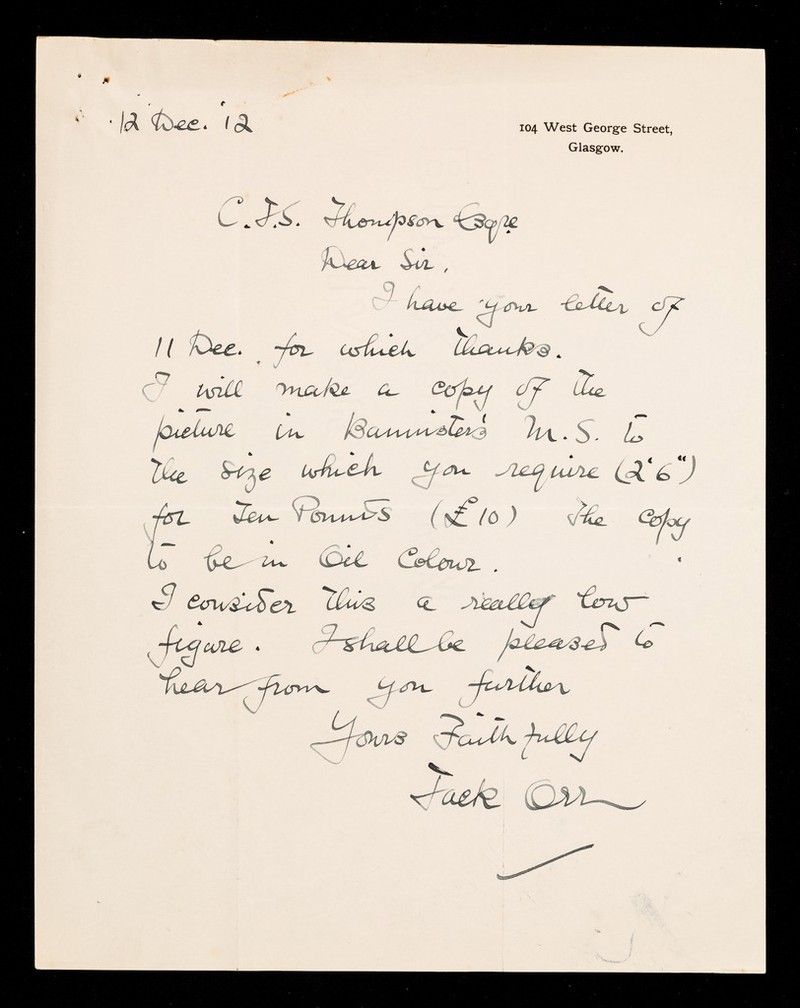 12 Dec. '12
104 West George Street,
Glasgow.
C.J.S. Thompson Esqre
Dear Sir,
I have your letter of
11 Dec. for which thanks.
I will make a copy of the
picture in Bannister's M.S. to
the size which you require (2'6")
for Ten Pounds (£10) The copy
to be in Oil Colour.
I consider this a really low
figure. I shall be pleased to
hear from you further
Yours Faithfully
Jack Orr